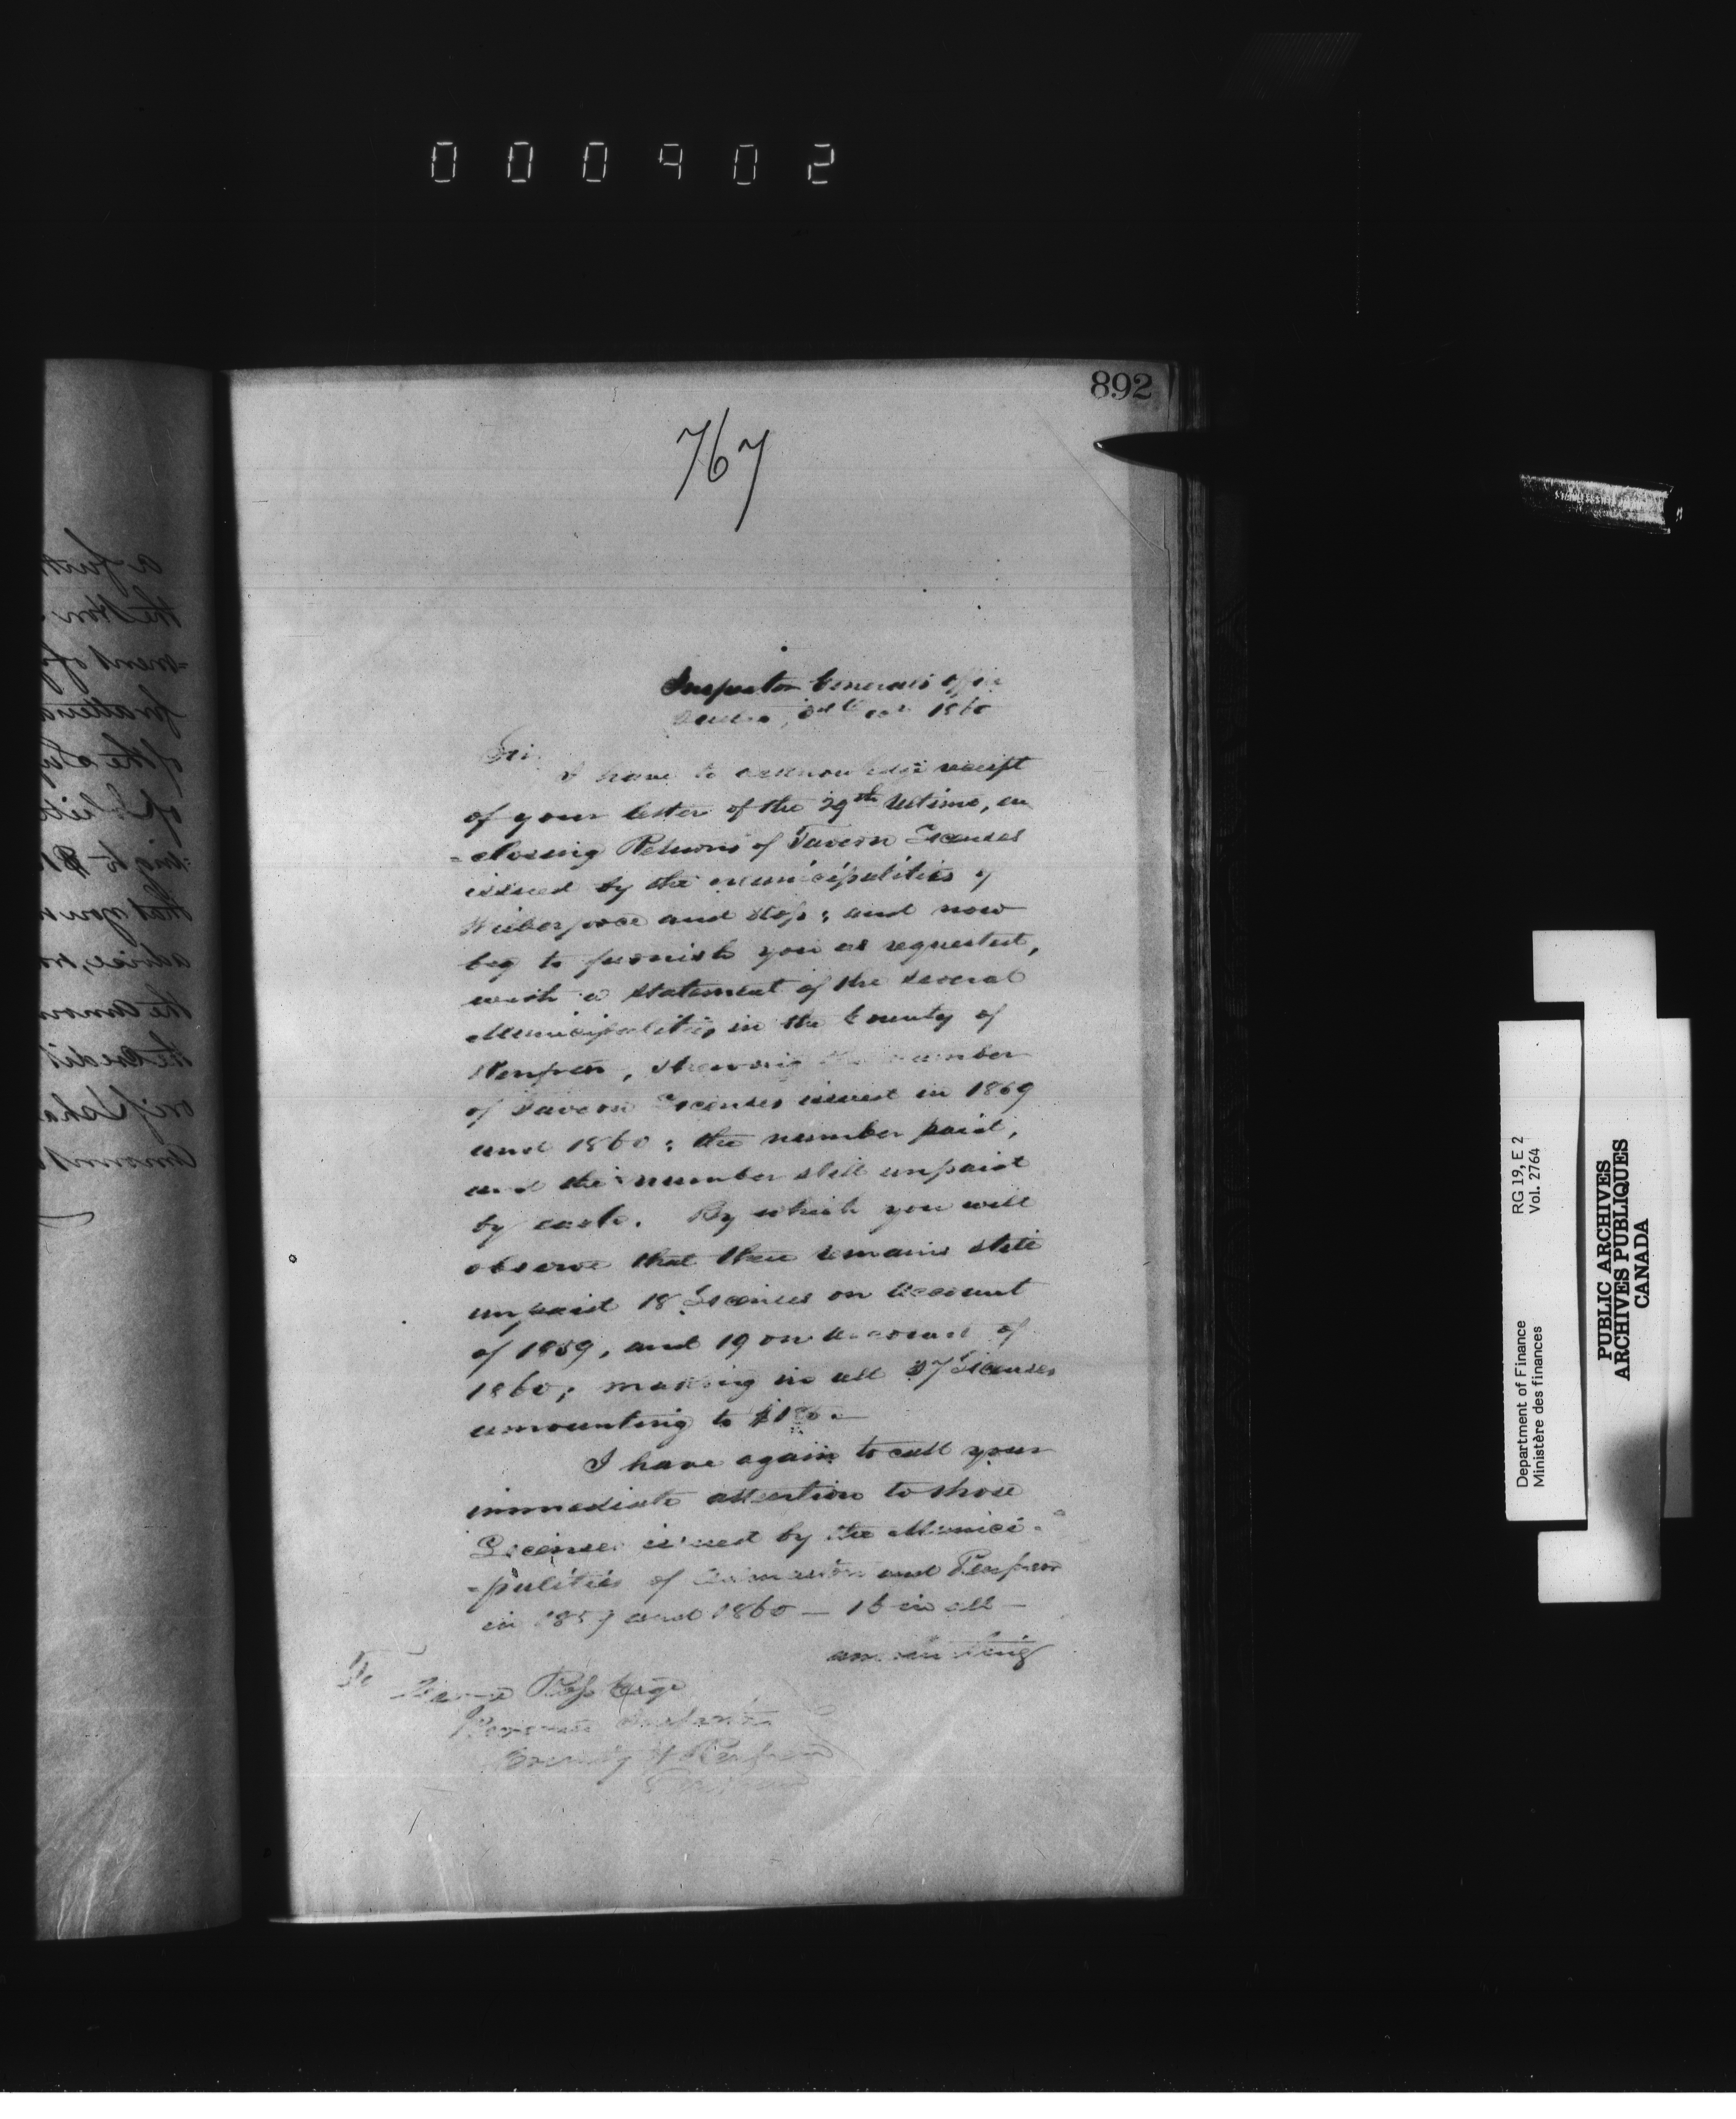 000902
892
767
Inspector General's Office
1860
Sir,
I have to acknowledge receipt
of your letter of the 29th Ultimo, en
=closing Returns of Tavern Licenses
issued by the municipalities of
Wilberforce and Ross; and now
beg to furnish you as requested,
with a statement of the several
Municipalities in the County of
Renfrew, shewing the number
of Tavern Licenses issued in 1859
and 1860: the number paid,
and the number still unpaid
by each. By which you will
observe that there remains still
unpaid 18 Licenses on account
of 1859, and 19 on account of
1860; making in all 37 Licenses
amounting to
I have again to call your
immediate attention to those
Licenses issued by the Munici-
-palities of and Renfrew
in 1859 and 1860 — 16 in all —
amounting
To
George Ross Esqr
Revenue Inspector
County of Renfrew
Department of Finance RG 19, E 2
Ministère des finances Vol. 2764
PUBLIC ARCHIVES
ARCHIVES PUBLIQUES
CANADA